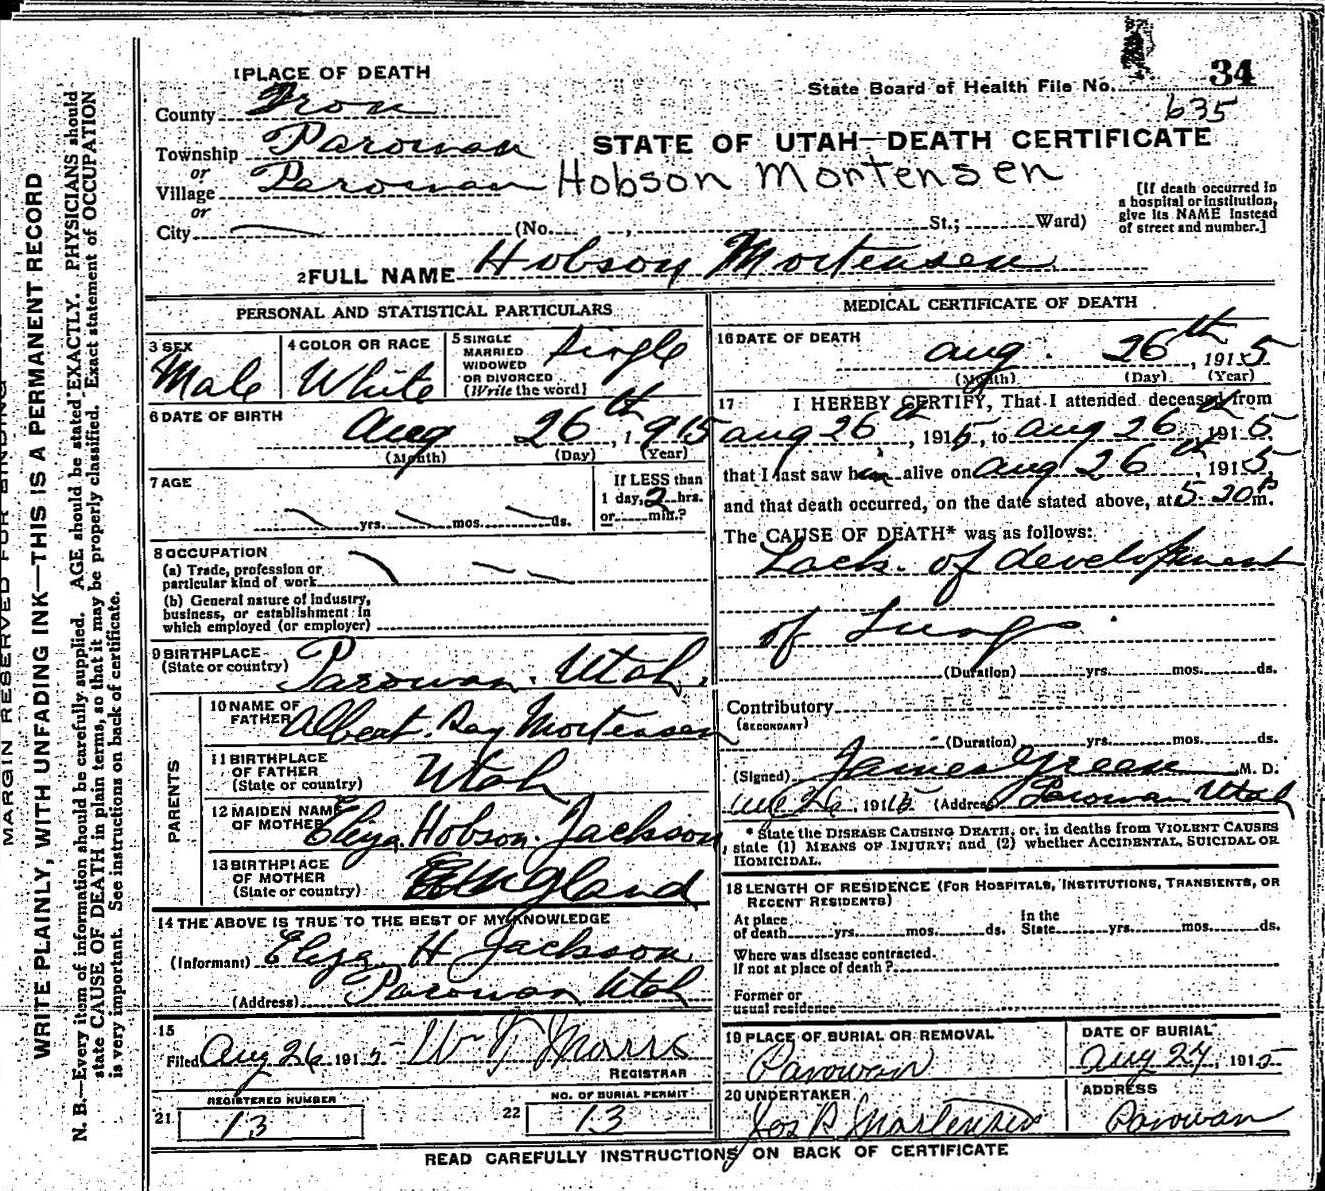 MARGIN RESERVED FOR BINDING
WRITE PLAINLY, WITH UNFADING INK—THIS IS A PERMANENT RECORD
N. B.—Every item of information should be carefully supplied. AGE should be stated EXACTLY. PHYSICIANS should
state CAUSE OF DEATH in plain terms, so that it may be properly classified. Exact statement of OCCUPATION
is very important. See instructions on back of certificate.
1 PLACE OF DEATH
34
State Board of Health File No.
635
County Iron
Township Parowan
or
Village Parowan
or
City
STATE OF UTAH—DEATH CERTIFICATE
Hobson Mortensen
[If death occurred in
a hospital or institution,
give its NAME instead
of street and number.]
(No. , St.; Ward)
2 FULL NAME Hobson Mortensen
PERSONAL AND STATISTICAL PARTICULARS
3 SEX
Male
4 COLOR OR RACE
White
5 SINGLE
MARRIED
WIDOWED
OR DIVORCED
(Write the word)
Single
6 DATE OF BIRTH
Aug 26th, 1915
(Month) (Day) (Year)
7 AGE
yrs. mos. ds.
If LESS than
1 day, 2 hrs.
or min.?
8 OCCUPATION
(a) Trade, profession or
particular kind of work
(b) General nature of industry,
business, or establishment in
which employed (or employer)
9 BIRTHPLACE
(State or country)
Parowan. Utah.
PARENTS
10 NAME OF
FATHER
Albert. Ray Mortensen
11 BIRTHPLACE
OF FATHER
(State or country)
Utah
12 MAIDEN NAME
OF MOTHER
Eliza Hobson. Jackson
13 BIRTHPLACE
OF MOTHER
(State or country)
England
14 THE ABOVE IS TRUE TO THE BEST OF MY KNOWLEDGE
(Informant) Eliza H Jackson
(Address) Parowan Utah
15
Filed Aug 26 1915 Wm Morris
REGISTRAR
21 REGISTERED NUMBER
13
22 NO. OF BURIAL PERMIT
13
MEDICAL CERTIFICATE OF DEATH
16 DATE OF DEATH
Aug. 26th, 1915
(Month) (Day) (Year)
17 I HEREBY CERTIFY, That I attended deceased from
Aug 26th, 1915, to Aug 26th 1915
that I last saw him alive on Aug 26th, 1915,
and that death occurred, on the date stated above, at 5-20 m.
The CAUSE OF DEATH* was as follows:
Lack. of development
of Lungs.
(Duration) yrs. mos. ds.
Contributory
(SECONDARY)
(Duration) yrs. mos. ds.
(Signed) James Green M. D.
Aug 26, 1915 (Address) Parowan Utah
* State the DISEASE CAUSING DEATH, or, in deaths from VIOLENT CAUSES
state (1) MEANS OF INJURY; and (2) whether ACCIDENTAL, SUICIDAL OR
HOMICIDAL.
18 LENGTH OF RESIDENCE (FOR HOSPITALS, INSTITUTIONS, TRANSIENTS, OR
RECENT RESIDENTS)
At place
of death yrs. mos. ds.
In the
State yrs. mos. ds.
Where was disease contracted.
If not at place of death?
Former or
usual residence
19 PLACE OF BURIAL OR REMOVAL
Parowan
DATE OF BURIAL
Aug 27, 1915
20 UNDERTAKER
Jos B Mortensen
ADDRESS
Parowan
READ CAREFULLY INSTRUCTIONS ON BACK OF CERTIFICATE